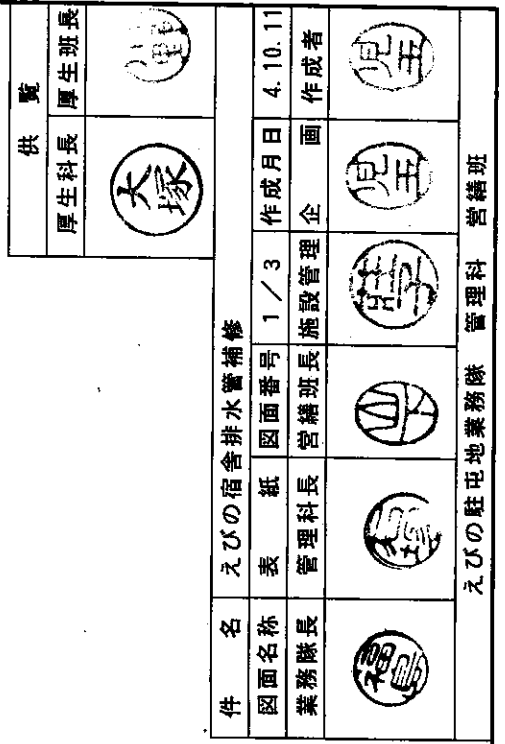 供覧
厚生科長 厚生班長
大塚
件名 えびの宿舎排水管補修
図面名称 表紙 図面番号 1/3 作成月日 4.10.11
業務隊長 管理科長 営繕班長 施設管理 企画 作成者
福島 児玉 児玉
えびの駐屯地業務隊 管理科 営繕班